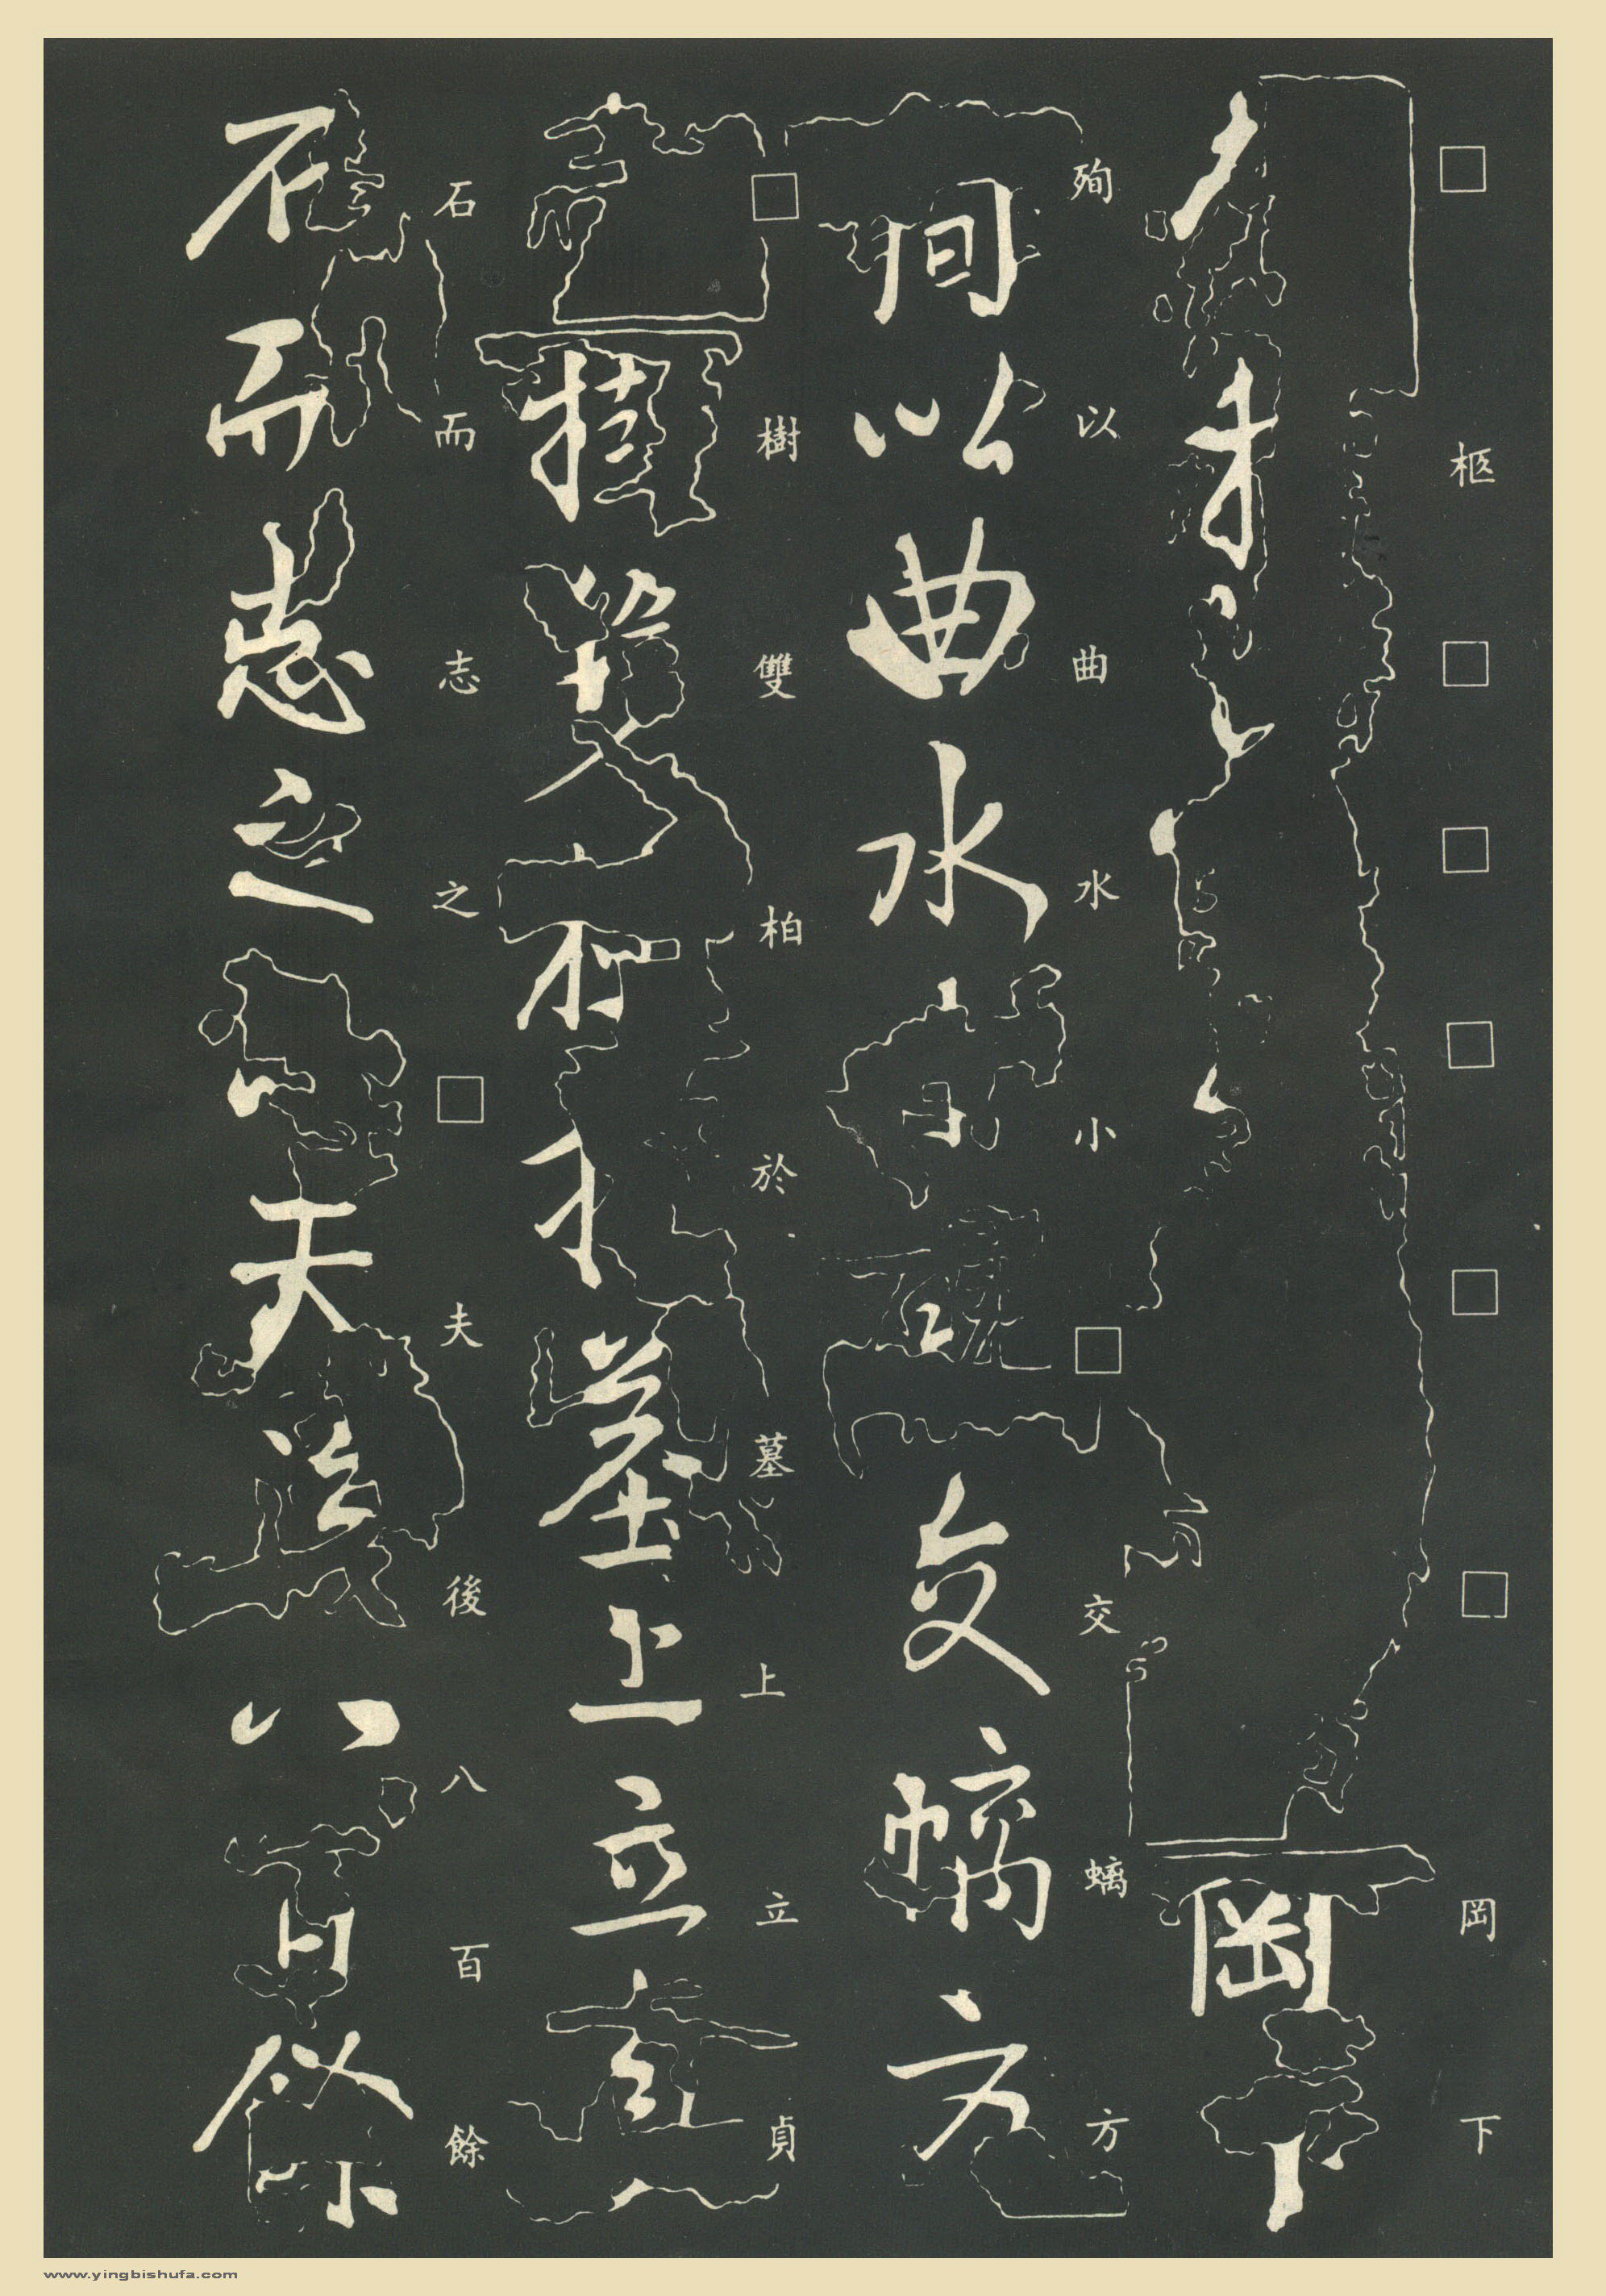 □柩□□□□□岡下
殉以曲水小□交螭方
□樹雙柏於墓上立貞
石而志之□夫後八百餘
www.yingbishufa.com